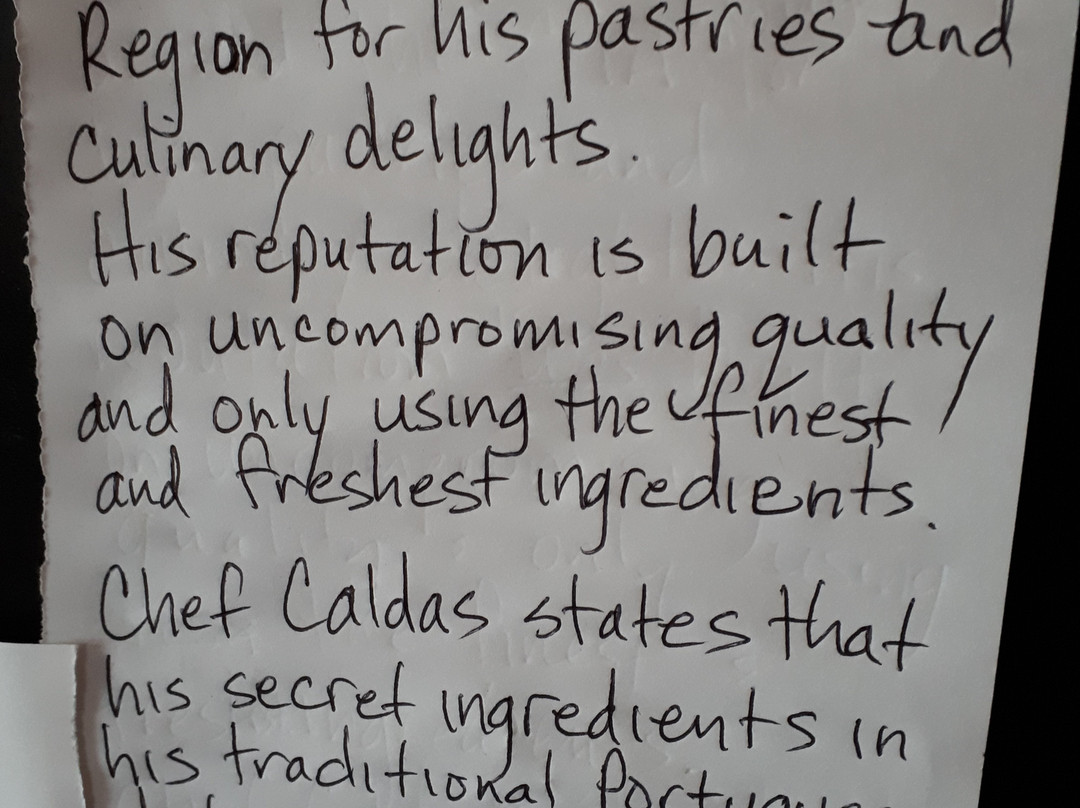 Region for his pastries and
culinary delights.
His reputation is built
on uncompromising quality
and only using the finest
and freshest ingredients.
Chef Caldas states that
his secret ingredients in
his traditional